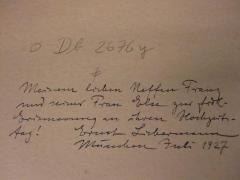 O Dk 2676 y
Meinem lieben Neffen Franz
und seiner Frau Else zur frdl.
Erinnerung an ihren Hochzeits-
tag! Ernst Liebermann
München Juli 1927